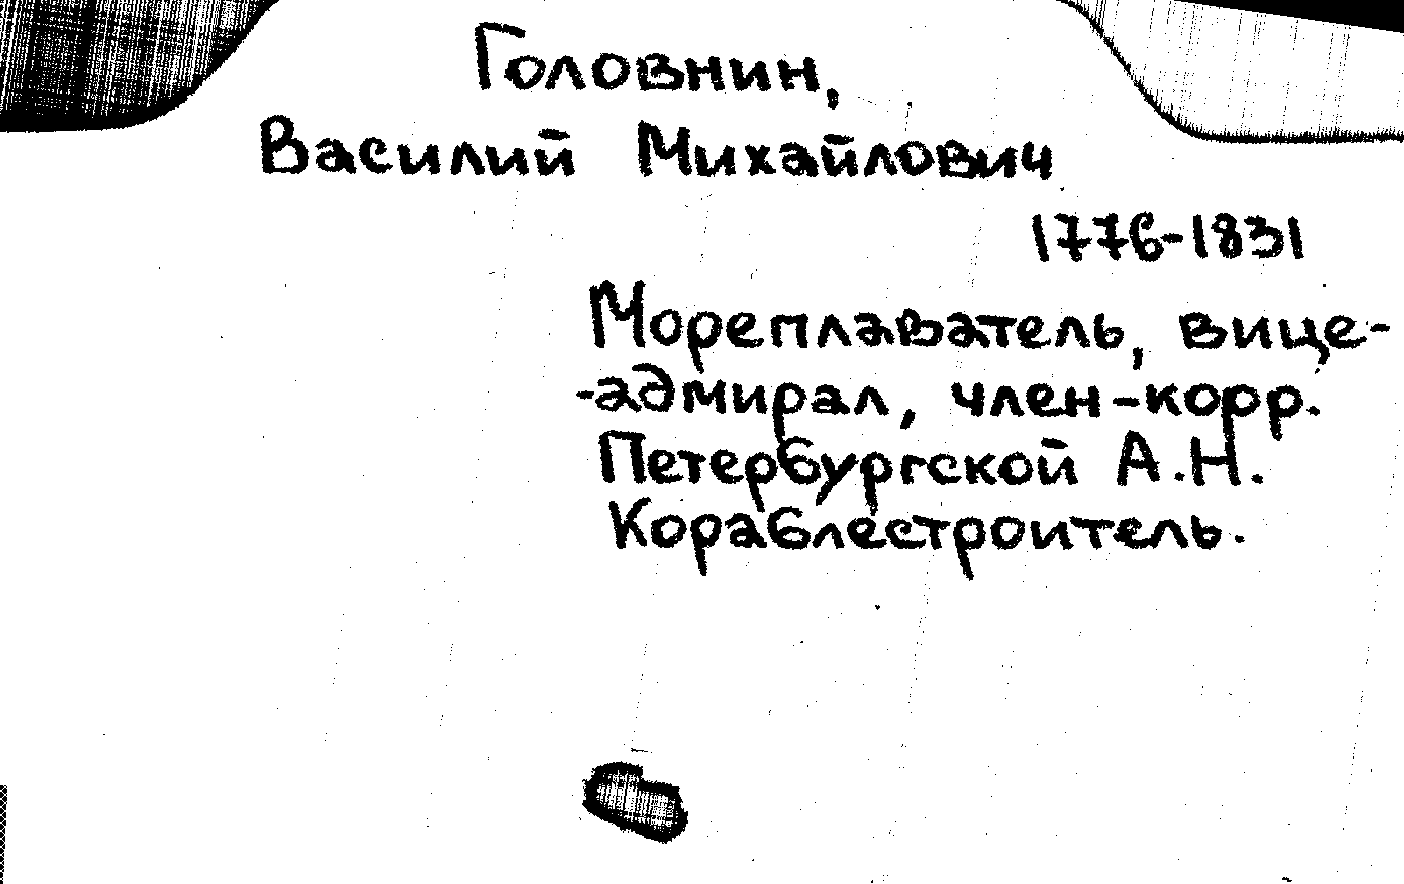 Головнин,
Василий Михайлович
1776-1831
Мореплаватель, вице-
-адмирал, член-корр.
Петербургской А.Н.
Кораблестроитель.